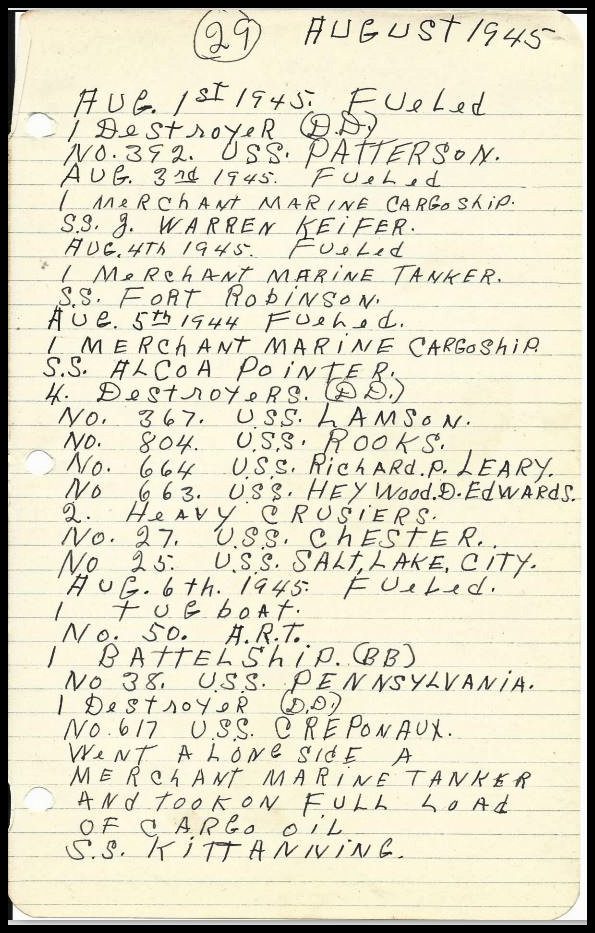 29 AUGUST 1945
AUG. 1ST 1945. FUELed
1 DEstroyER (D.D.)
NO. 392. USS. PATTERSON.
AUG. 3rd 1945. FUELed
1 MERCHANT MARINE CARGOShiP.
S.S. J. WARREN KEiFER.
AUG. 4th 1945. FUELed
1 MeRChANT MARINE TANKER.
S.S. FORT RobiNSON.
AUG. 5th 1944 FUELed.
1 MERChANT MARINE CARGOShiP.
S.S. ALCOA POiNTER.
4. DEStroyeRS. (DD.)
NO. 367. U.S.S. LAMSON.
NO. 804. U.S.S. ROOKS.
NO. 664 U.S.S. RiChARd.P. LEARY.
NO 663. U.S.S. HEYWood.D.EdWARdS.
2. HEAVY CRUSiERS.
NO. 27. U.S.S. CHESTER.
NO 25. U.S.S. SALT, LAKE, CiTY.
AUG. 6th. 1945. FUELed.
1 tUG boAt.
No. 50. A.R.T.
1 BATTELShiP. (BB)
NO 38. U.S.S. PENNSYLVANiA.
1 DEStroyER (D.D.)
NO. 617 U.S.S. CREPONAUX.
WENT ALONG SidE A
MERChANT MARiNE TANKER
ANd tOOK ON FULL LOAd
OF CARGO OIL
S.S. KiTTANNiNG.